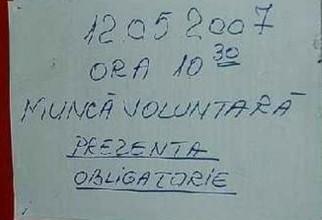 12 05 2007
ORA 10 30
MUNCĂ VOLUNTARĂ
PREZENTA
OBLIGATORIE